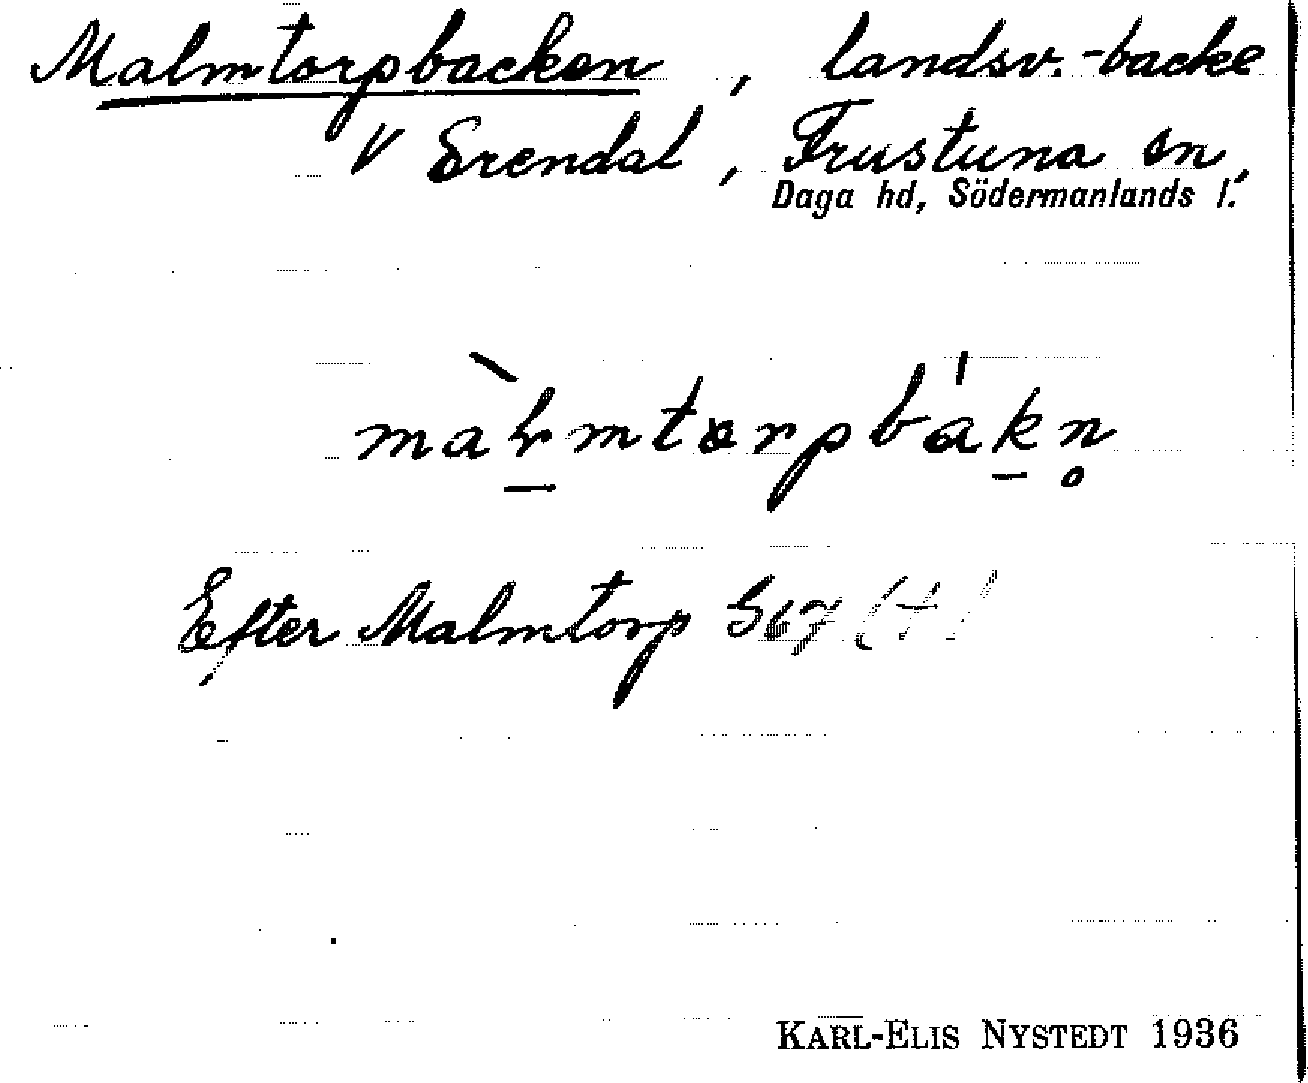 Malmtorpbacken, landsv.-backe
V Erendal, Frustuna sn,
Daga hd, Södermanlands l.
Efter Malmtorp 567 (+)
KARL-ELIS NYSTEDT 1936